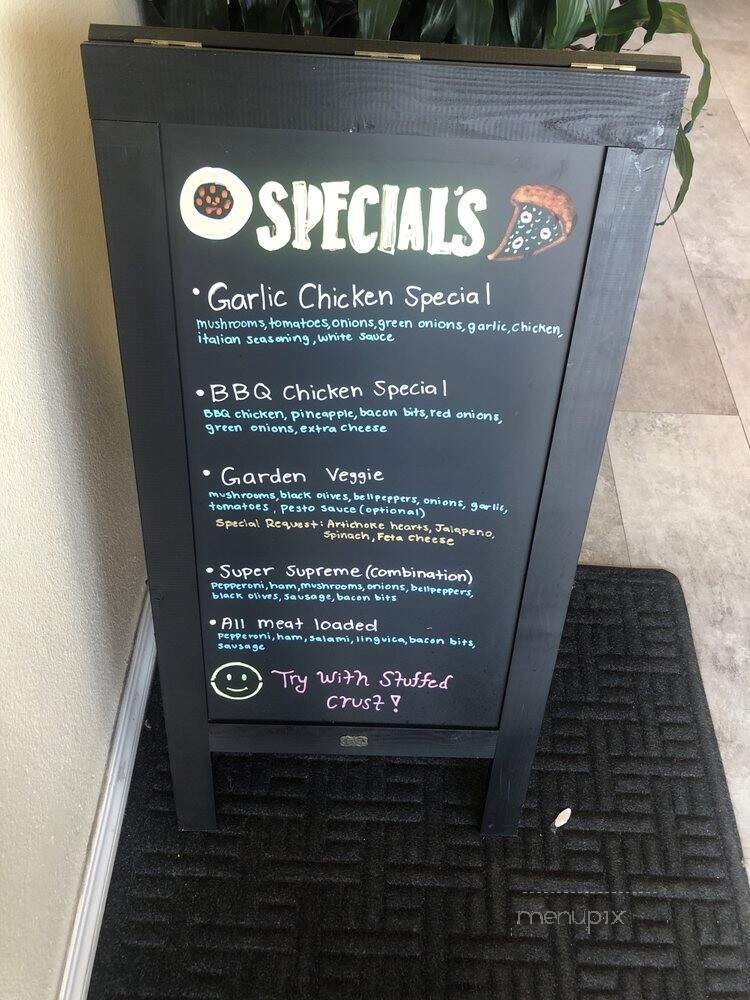 SPECIAL'S
• Garlic Chicken Special
mushrooms, tomatoes, onions, green onions, garlic, chicken,
italian seasoning, white sauce
• BBQ Chicken Special
BBQ chicken, pineapple, bacon bits, red onions,
green onions, extra cheese
• Garden Veggie
mushrooms, black olives, bellpeppers, onions, garlic,
tomatoes, pesto sauce (optional)
Special Request: Artichoke hearts, Jalapeno,
Spinach, Feta Cheese
• Super Supreme (combination)
Pepperoni, ham, mushrooms, onions, bellpeppers,
black olives, sausage, bacon bits
• All meat loaded
Pepperoni, ham, salami, linguica, bacon bits,
sausage
Try with Stuffed
Crust!
menupix